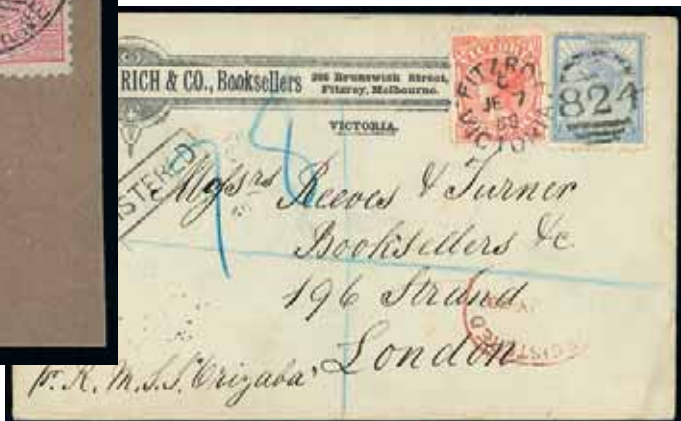 RICH & CO., Booksellers
266 Brunswick Street,
Fitzroy, Melbourne.
VICTORIA.
FITZROY
JE 7
VICTORIA
824
ISTERED
78
Messrs Reeves & Turner
Booksellers &c
196 Strand
London
GISTERED
pr. R.M.S.S. Orizaba